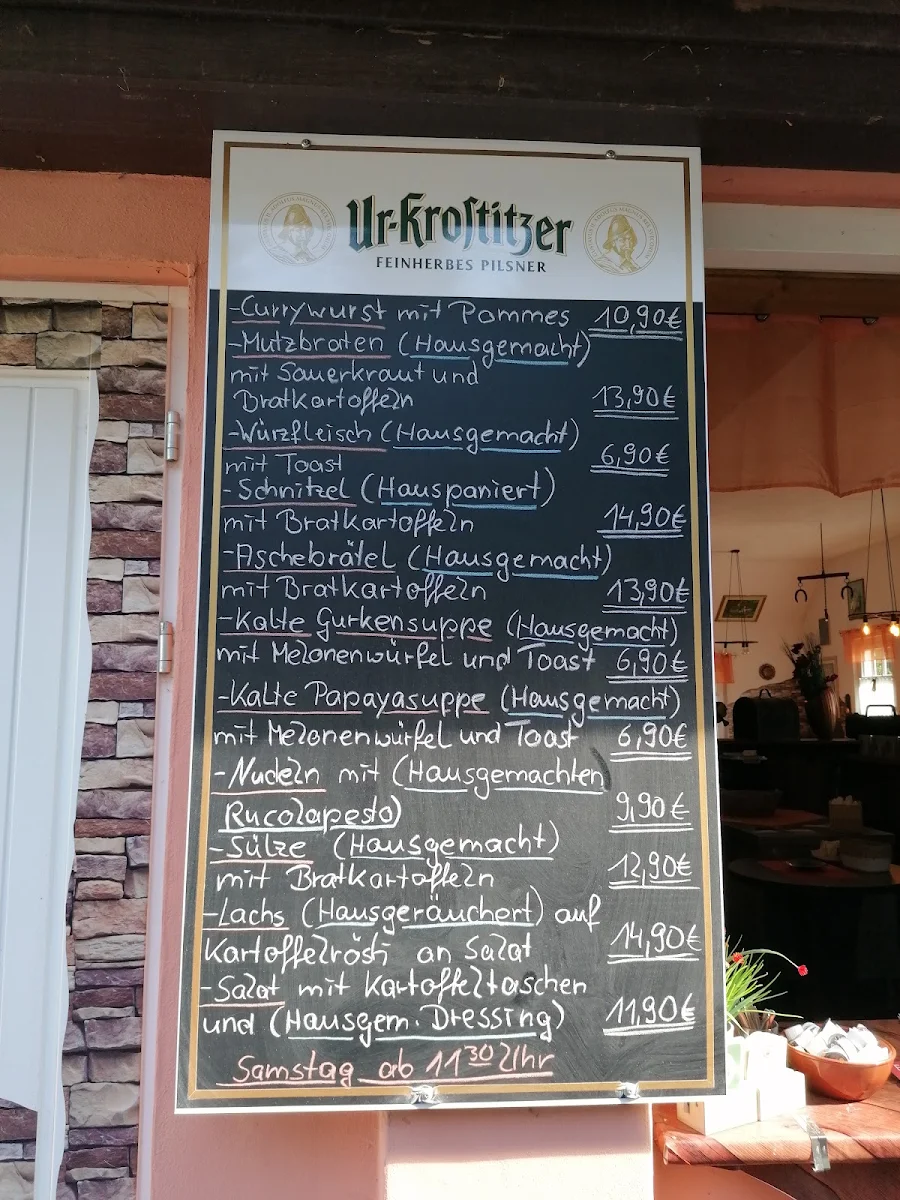 Ur-Krostitzer
FEINHERBES PILSNER
-Currywurst mit Pommes 10,90€
-Mutzbraten (Hausgemacht)
mit Sauerkraut und
Bratkartoffeln 13,90€
-Würzfleisch (Hausgemacht)
mit Toast 6,90€
-Schnitzel (Hauspaniert)
mit Bratkartoffeln 14,90€
-Aschebrätel (Hausgemacht)
mit Bratkartoffeln 13,90€
-Kalte Gurkensuppe (Hausgemacht)
mit Melonenwürfel und Toast 6,90€
-Kalte Papayasuppe (Hausgemacht)
mit Melonenwürfel und Toast 6,90€
-Nudeln mit (Hausgemachten
Rucolapesto) 9,90€
-Sülze (Hausgemacht)
mit Bratkartoffeln 12,90€
-Lachs (Hausgeräuchert) auf
Kartoffelrösti an Salat 14,90€
-Salat mit Kartoffeltaschen
und (Hausgem. Dressing) 11,90€
Samstag ab 11³⁰ Uhr